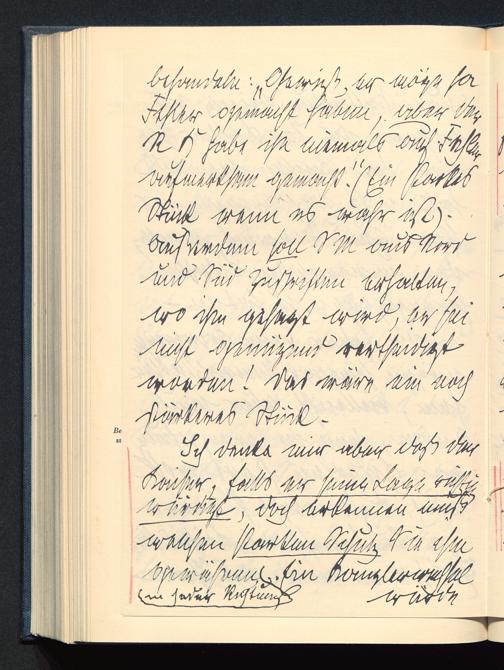 behandeln: „Gewiß, er möge ja
Fehler gemacht haben, aber der
R K habe ihn niemals auf Fehler
aufmerksam gemacht!" (Ein starkes
Stück wenn es wahr ist).
Außerdem soll SM aus Nord
und Süd Zuschriften erhalten,
wo ihm gesagt wird, er sei
nicht genügend vertheidigt
worden! Das wäre ein noch
stärkeres Stück.
Ich denke mir aber daß der
Kaiser, falls er seine Lage richtig
würdigt, doch erkennen muß
welchen starken Schutz Sie ihm
gewähren. Ein Kanzlerwechsel
(in jeder Richtung) würde
Be